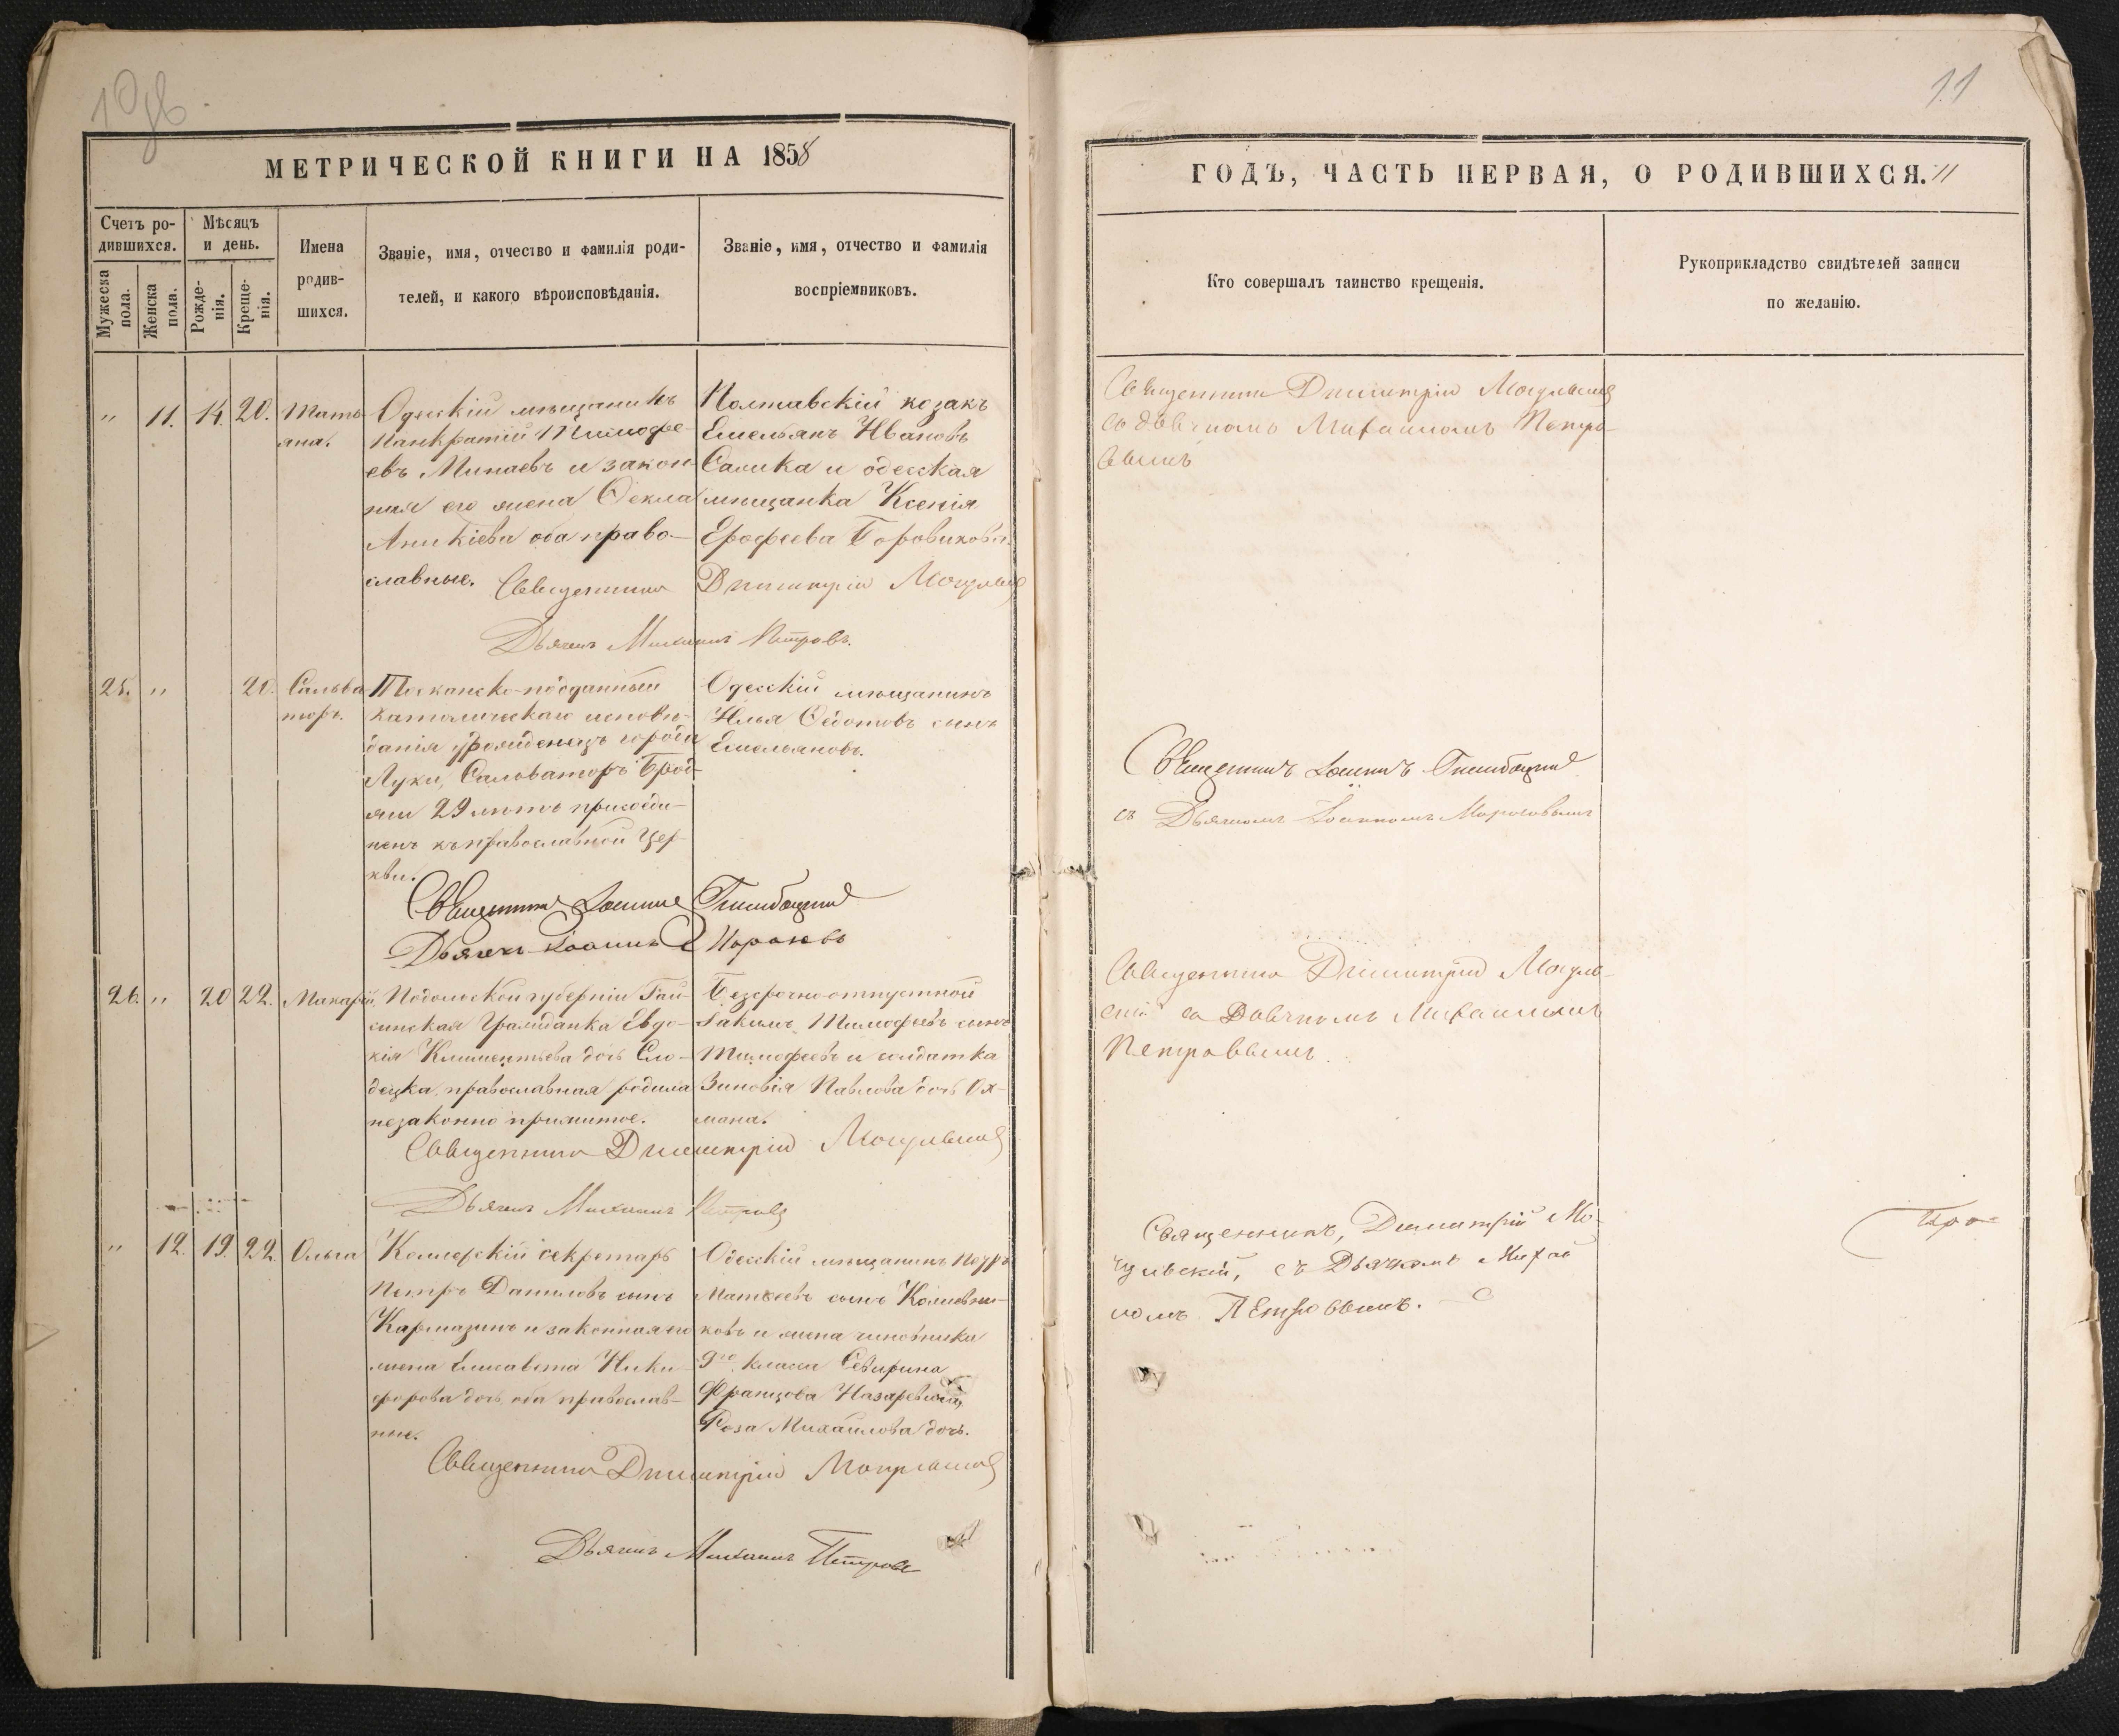 10об.
МЕТРИЧЕСКОЙ КНИГИ НА 1858
Счетъ ро-
дившихся.
Мужеска
пола.
Женска
пола.
Мѣсяцъ
и день.
Рожде-
нія.
Креще-
нія.
Имена
родив-
шихся.
Званіе, имя, отчество и фамилія роди-
телей, и какого вѣроисповѣданія.
Званіе, имя, отчество и фамилія
воспріемниковъ.
" 11. 14. 20.
Тать-
яна.
Одесскій мѣщанинъ
Панкратій Тимофе-
евъ Минаевъ и закон-
ная его жена Ѳекла
Аникіева оба право-
славные.
Полтавскій козакъ
Емельянъ Ивановъ
Салика и одесская
мѣщанка Ксенія
Ерофеева Боровикова.
Священникъ Димитрій Могульскій
Дьячекъ Михаилъ Петровъ.
25. " 20.
Сальва
торъ.
Тосканско-подданный
католическаго исповѣ-
данія уроженецъ города
Луки, Сальваторъ Брод-
жи 29 лѣтъ присоеди-
ненъ къ православной Цер-
кви.
Одесскій мѣщанинъ
Илья Ѳедотовъ сынъ
Емельяновъ.
Священникъ Іоаннъ
Дьячекъ Іоаннъ Морозовъ
26. " 20 22.
Макарій.
Подольской губерніи Гай-
синская Гражданка Евдо-
кія Климентьева дочь Сло-
децка, православная родила
незаконно прижитое.
Безсрочноотпустной
Іакимъ Тимофеевъ сынъ
Тимофеевъ и солдатка
Зиновія Павлова дочь Ох-
мана.
Священникъ Димитрій Могульскій
Дьячекъ Михаилъ Петровъ
" 12. 19. 22.
Ольга
Коллежскій секретарь
Петръ Даниловъ сынъ
Кармазинъ и законная его
жена Елисавета Ники-
форова дочь, оба православ-
ные.
Одесскій мѣщанинъ Петръ
Матвеевъ сынъ Колиевни-
ковъ и жена чиновника
9го класса Северина
Францова Назаревича,
Роза Михайлова дочь.
Священникъ Димитрій Могульскій
Дьячекъ Михаилъ Петровъ
11
ГОДЪ, ЧАСТЬ ПЕРВАЯ, О РОДИВШИХСЯ. 11
Кто совершалъ таинство крещенія.
Рукоприкладство свидѣтелей записи
по желанію.
Священникъ Димитрій Могульскій
съ дьячкомъ Михаиломъ Петро-
вымъ
Священникъ Іоаннъ
съ Дьячкомъ Іоанномъ Морозовымъ
Священникъ Димитрій Могуль-
скій съ Дьячкомъ Михаиломъ
Петровымъ.
Священникъ, Димитрій Мо-
гульскій, съ Дьячкомъ Михаи
ломъ Петровымъ.
Про-